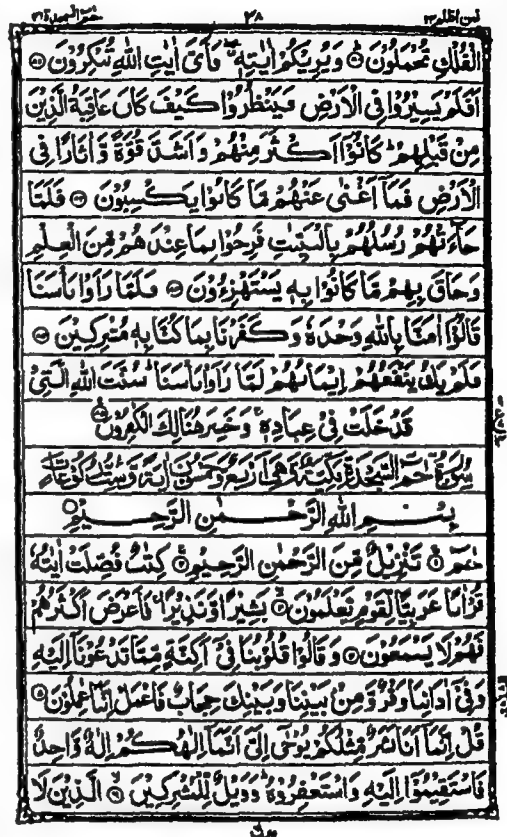 فمن اظلم ۲۴ ۷۴۸ حٰمٓ السجدة ۴۱
الْفُلْكِ تُحْمَلُوْنَ ۞ وَ يُرِيْكُمْ اٰيٰتِهٖ ۖ فَاَيَّ اٰيٰتِ اللّٰهِ تُنْكِرُوْنَ ۞
اَفَلَمْ يَسِيْرُوْا فِي الْاَرْضِ فَيَنْظُرُوْا كَيْفَ كَانَ عَاقِبَةُ الَّذِيْنَ
مِنْ قَبْلِهِمْ ؕ كَانُوْۤا اَكْثَرَ مِنْهُمْ وَ اَشَدَّ قُوَّةً وَّ اٰثَارًا فِي
الْاَرْضِ فَمَاۤ اَغْنٰى عَنْهُمْ مَّا كَانُوْا يَكْسِبُوْنَ ۞ فَلَمَّا
جَآءَتْهُمْ رُسُلُهُمْ بِالْبَيِّنٰتِ فَرِحُوْا بِمَا عِنْدَهُمْ مِّنَ الْعِلْمِ
وَحَاقَ بِهِمْ مَّا كَانُوْا بِهٖ يَسْتَهْزِءُوْنَ ۞ فَلَمَّا رَاَوْا بَاْسَنَا
قَالُوْۤا اٰمَنَّا بِاللّٰهِ وَحْدَهٗ وَ كَفَرْنَا بِمَا كُنَّا بِهٖ مُشْرِكِيْنَ ۞
فَلَمْ يَكُ يَنْفَعُهُمْ اِيْمَانُهُمْ لَمَّا رَاَوْا بَاْسَنَا ؕ سُنَّتَ اللّٰهِ الَّتِيْ
قَدْ خَلَتْ فِيْ عِبَادِهٖ ۚ وَ خَسِرَ هُنَالِكَ الْكٰفِرُوْنَ ۞
سُوْرَةُ حٰمٓ السَّجْدَةِ مَكِّيَّةٌ وَّهِيَ اَرْبَعٌ وَّخَمْسُوْنَ اٰيَةً وَّسِتُّ رُكُوْعَاتٍ
بِسْمِ اللّٰهِ الرَّحْمٰنِ الرَّحِيْمِ
حٰمٓ ۞ تَنْزِيْلٌ مِّنَ الرَّحْمٰنِ الرَّحِيْمِ ۞ كِتٰبٌ فُصِّلَتْ اٰيٰتُهٗ
قُرْاٰنًا عَرَبِيًّا لِّقَوْمٍ يَّعْلَمُوْنَ ۞ بَشِيْرًا وَّ نَذِيْرًا ۚ فَاَعْرَضَ اَكْثَرُهُمْ
فَهُمْ لَا يَسْمَعُوْنَ ۞ وَ قَالُوْا قُلُوْبُنَا فِيْۤ اَكِنَّةٍ مِّمَّا تَدْعُوْنَاۤ اِلَيْهِ
وَ فِيْۤ اٰذَانِنَا وَقْرٌ وَّ مِنْۢ بَيْنِنَا وَ بَيْنِكَ حِجَابٌ فَاعْمَلْ اِنَّنَا عٰمِلُوْنَ ۞
قُلْ اِنَّمَاۤ اَنَا بَشَرٌ مِّثْلُكُمْ يُوْحٰۤى اِلَيَّ اَنَّمَاۤ اِلٰهُكُمْ اِلٰهٌ وَّاحِدٌ
فَاسْتَقِيْمُوْۤا اِلَيْهِ وَ اسْتَغْفِرُوْهُ ؕ وَ وَيْلٌ لِّلْمُشْرِكِيْنَ ۞ الَّذِيْنَ لَا